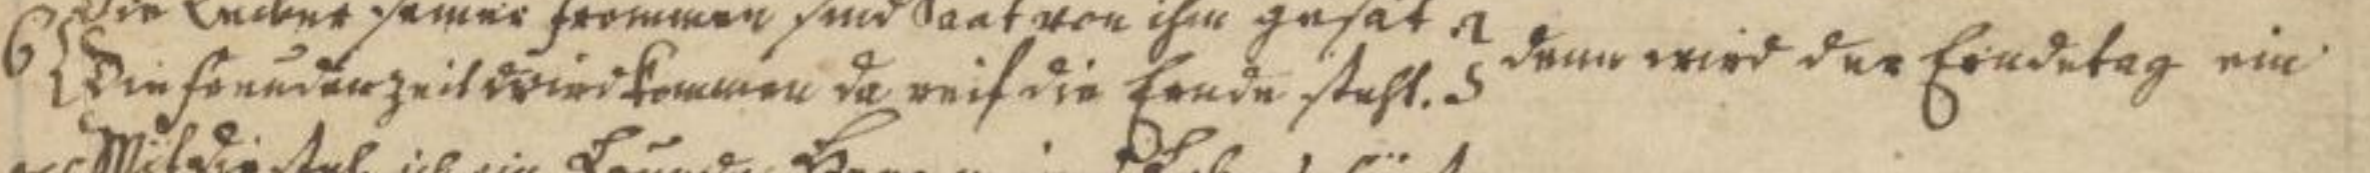 Die Leiber seiner frommen sind Saat von ihm gesät
6 Die freudenzeit wird kommen da reif die Ernde steht. denn wird der Erndetag ein